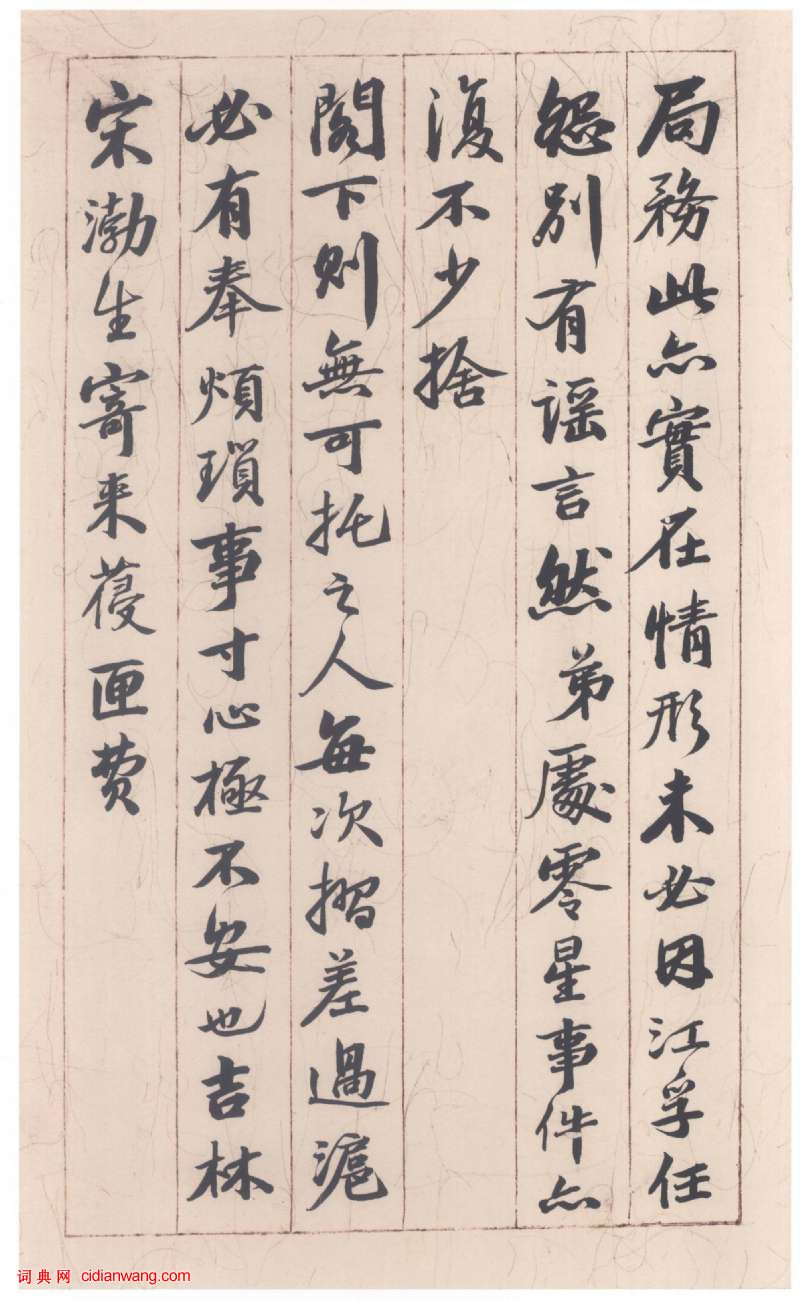 局務此亦實在情形未必因江孚任
怨別有謡言然弟處零星事件亦
復不少捨
閣下則無可托之人每次摺差過滬
必有奉煩瑣事寸心極不安也吉林
宋渤生寄來葠匣费
词典网 cidianwang.com